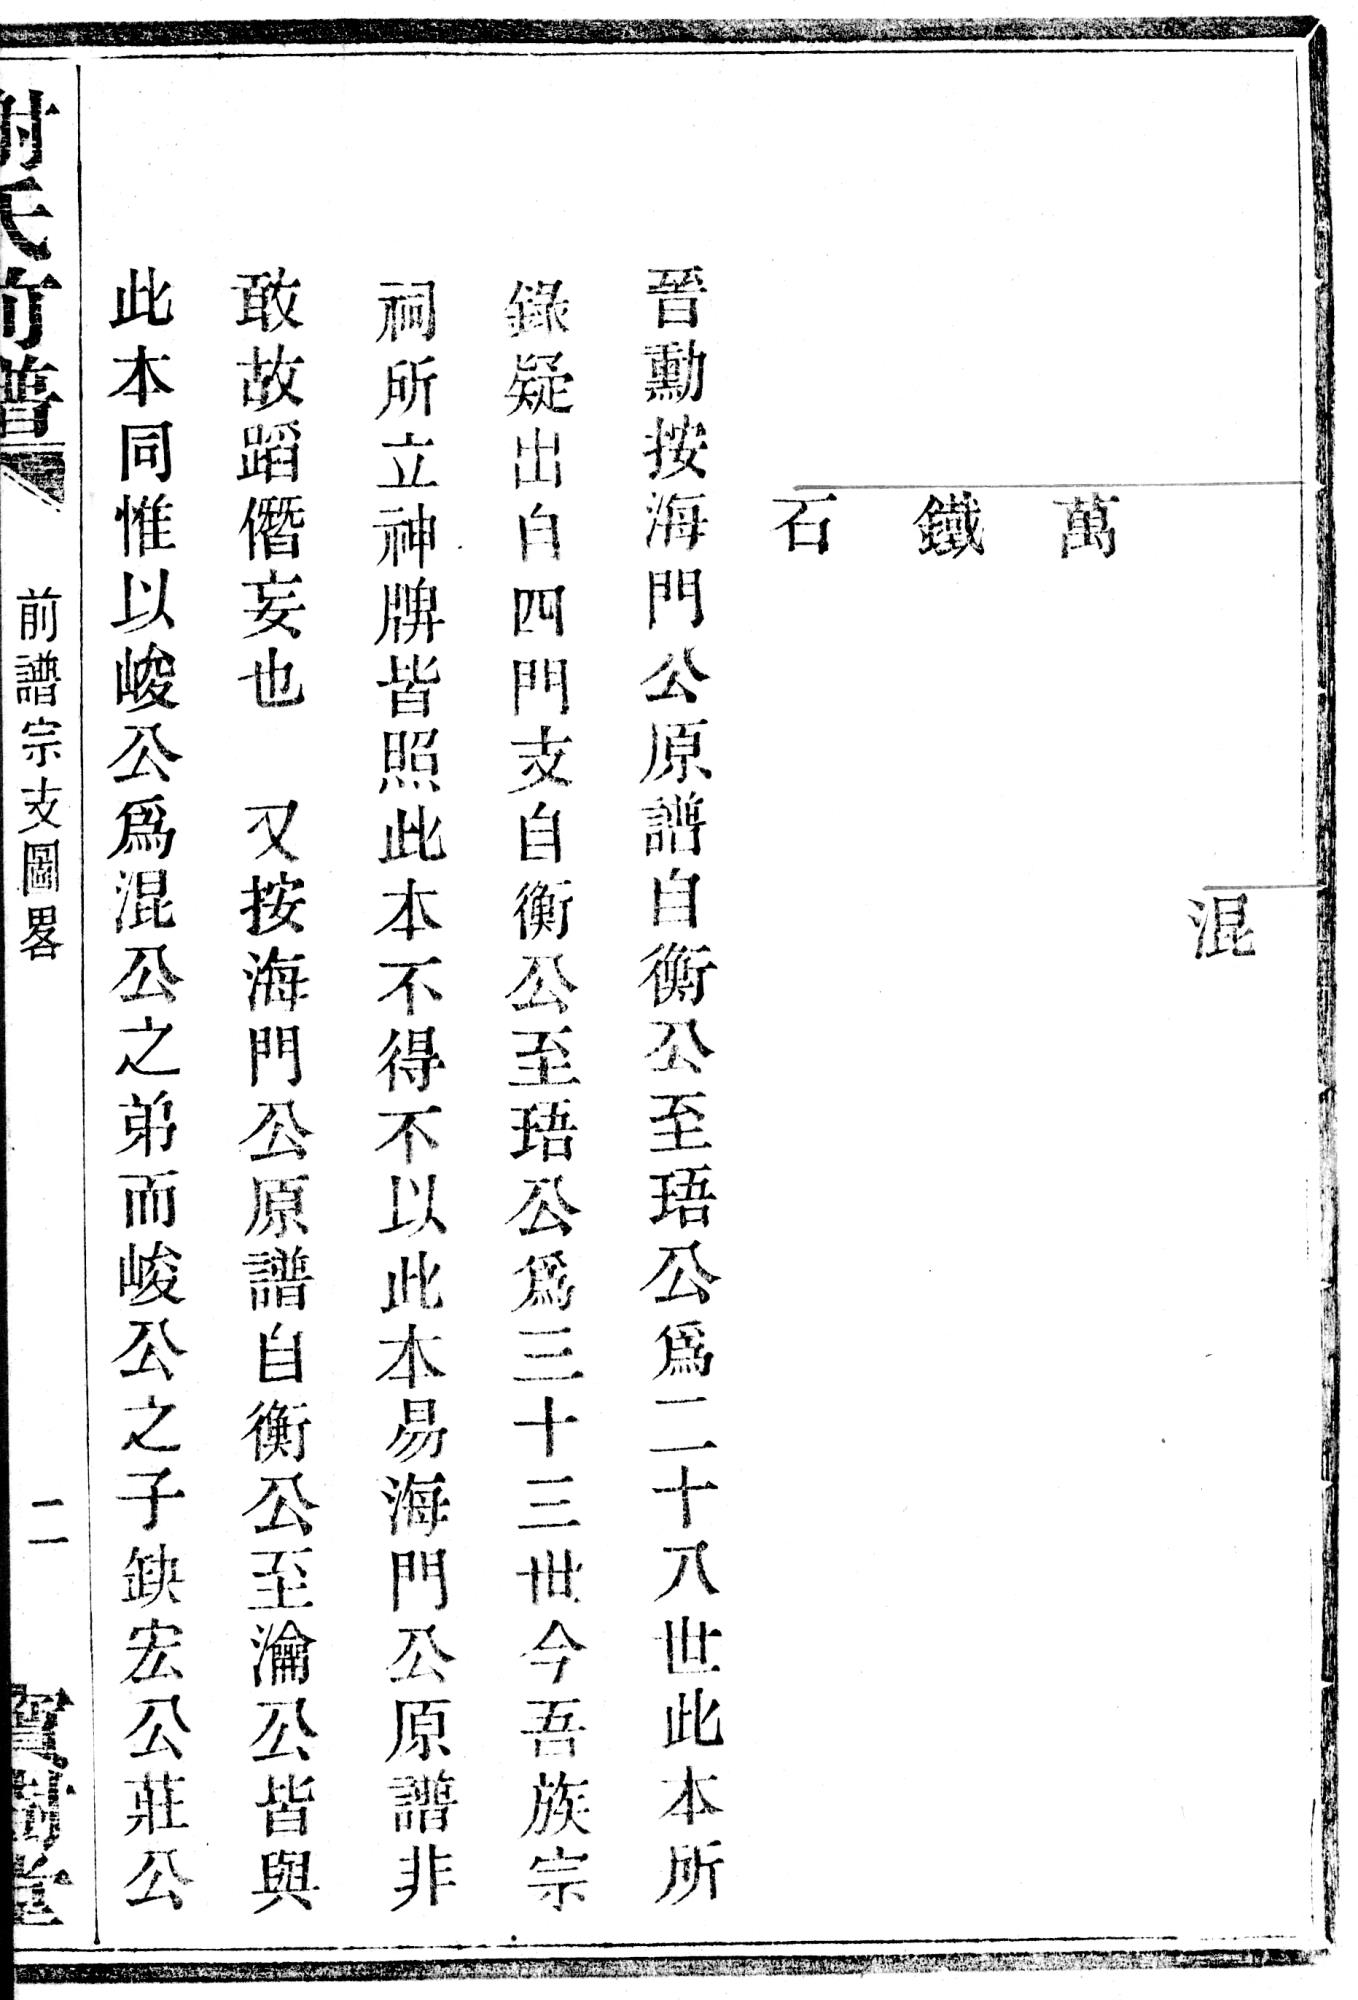 混
萬
鐵
石
晉勳按海門公原譜自衡公至珸公爲二十八世此本所
錄疑出自四門支自衡公至珸公爲三十三世今吾族宗
祠所立神牌皆照此本不得不以此本易海門公原譜非
敢故蹈僭妄也　又按海門公原譜自衡公至瀹公皆與
此本同惟以峻公爲混公之弟而峻公之子缺宏公莊公
謝氏前譜
前譜宗支圖畧
二
寶樹堂